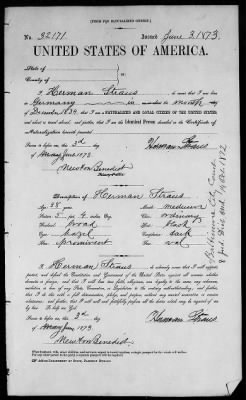 [FORM FOR NATURALIZED CITIZEN.]
No. 32171. Issued June 3. 1873.
UNITED STATES OF AMERICA.
State of
County of
I Herman Straus do swear that I was born
in Germany on or about the month
of December 1834, that I am a NATURALIZED AND LOYAL CITIZEN OF THE UNITED STATES
and about to travel abroad, and further, that I am the Identical Person described in the Certificate of
Naturalization herewith presented
Sworn to before me, this 2d
day of June 1873.
Herman Straus
Newton Benedict
Notary Public
Description of Herman Straus
Age: 38 years
Mouth: medium
Stature: 5 feet 4 inches, Eng.
Chin: ordinary
Forehead: broad
Hair: black
Eyes: hazel
Complexion: dark
Nose: prominent
Face: oval
I, Herman Straus do solemnly swear that I will support,
protect, and defend the Constitution and Government of the United States against all enemies, whether
domestic or foreign; and that I will bear true faith, allegiance, and loyalty to the same, any ordinance,
resolution, or law of any State, Convention, or Legislature to the contrary notwithstanding; and further,
that I do this with a full determination, pledge, and purpose, without any mental reservation or evasion
whatsoever; and further, that I will well and faithfully perform all the duties which may be required of me
by law. So help me God.
Sworn to before me, this 2d
day of June 1873
Herman Straus
Newton Benedict
Baltimore City Court